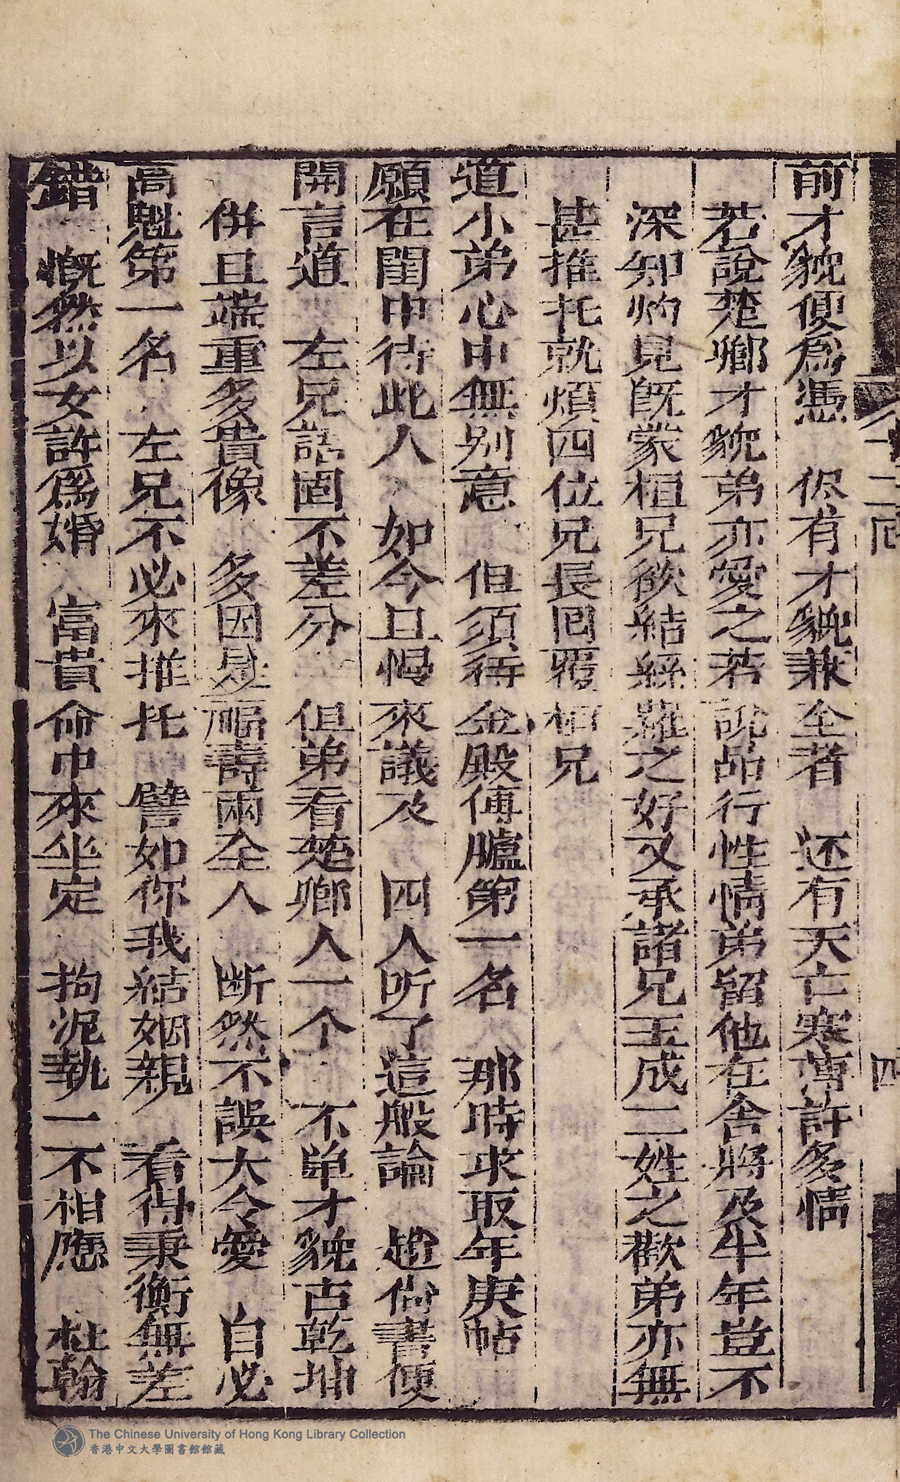 前才貌便爲憑　但有才貌兼全者　还有夭亡寒薄許多情
若說楚鄉才貌弟亦愛之若說品行性情弟留他在舍將及半年豈不
深知灼見既蒙桓兄欲結絲蘿之好又承諸兄玉成二姓之歡弟亦無
甚推托就煩四位兄長囘覆桓兄
道小弟心中無别意　但須待金殿傳臚第一名　那時求取年庚帖
願在閨中待此人　如今且慢來議及　四人听了這般論　趙尚書便
開言道　左兄語固不差分　但弟看楚鄉人一个　不單才貌古乾坤
併且端重多貴像　多因是福壽兩全人　断然不誤大令愛　自必
高魁第一名　左兄不必來推托　譬如你我結姻親　看得秉衡無差
錯　慨然以女許爲婚　富貴命中來坐定　拘泥執一不相應　杜翰
二囘
四
The Chinese University of Hong Kong Library Collection
香港中文大學圖書館館藏